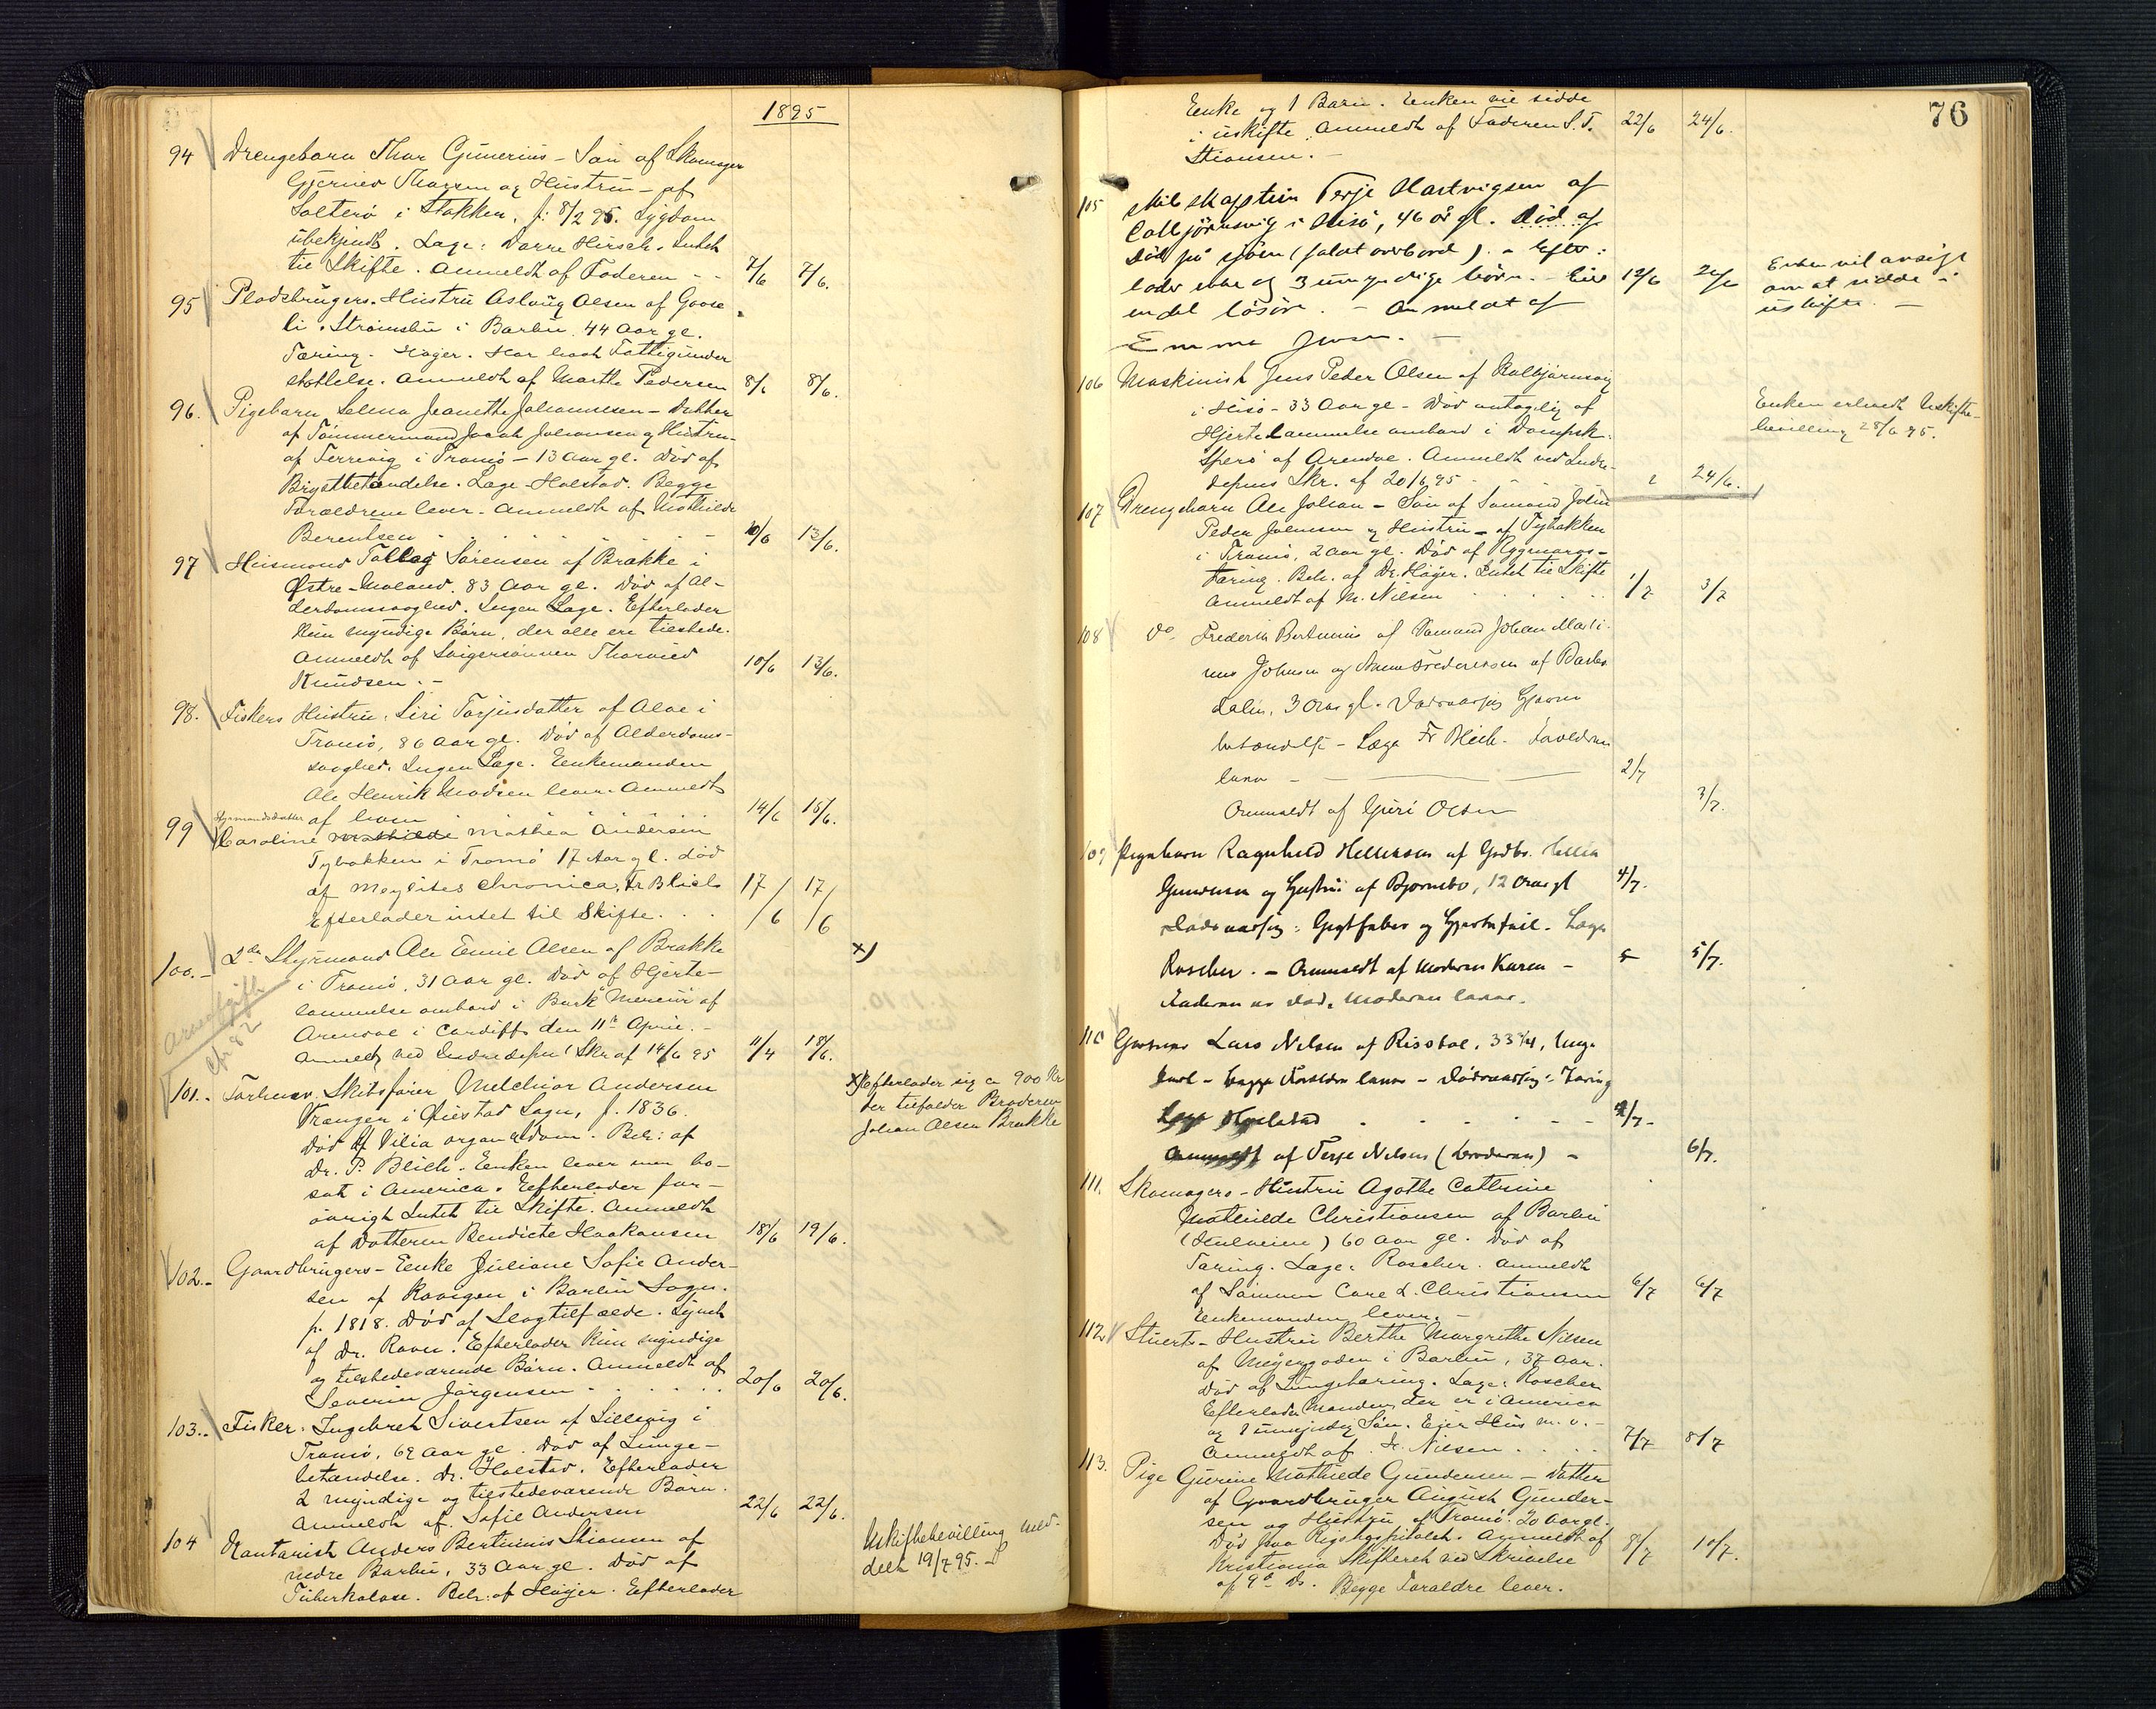 1895
94 Drengebarn Thor Gunerius - Søn af Skomager
Gjerulv Thorsen og Hustru - af
Salterø i Stokken, f: 8/2 95. Sygdom
ubekjendt. Læge: Dorre Hirsch. Intet
til Skifte. Anmeldt af Faderen - - 7/6 7/6.
95 Pladsbrugers Hustru Aslaug Olsen af Goose-
li. Strømsbu i Barbu. 44 Aar gl.
Tæring. Høyer. Har havt Fattigunder
støttelse. Anmeldt af Marthe Pedersen 8/6 8/6.
96. Pigebarn Selma Jeanette Johannesen - Datter
af Tømmermand Jacob Johansen og Hustru
af Færvig i Tromø - 13 Aar gl. Død af
Brystbetændelse. Læge Holstad. Begge
Forældrene lever. Anmeldt af Mathilde
Berentsen 10/6 13/6.
97 Husmand Tallag Sørensen af Brække i
Østre-Moland. 83 Aar gl. Død af Al-
derdomssvaghed. Ingen Læge. Efterlader
kun myndige Børn, der alle ere tilstede.
Anmeldt af Svigersønnen Thorvald
Knudsen. - 10/6 13/6.
98. Fiskers Hustru Siri Torjusdatter af Alve i
Tromø, 86 Aar gl. Død af Alderdoms-
svaghed. Ingen Læge. Enkemanden
Ole Henrik Madsen lever. Anmeldt
af ham 14/6 15/6.
99 Styrmandsdatter
Caroline Mathea Andersen
Tybakken i Tromø 17 Aar gl. død
af Myelites Chronica, Fr Blich 17/6 17/6
Efterlader intet til Skifte. . .
100. - 2den Styrmand Ole Emil Olsen af Brække x)
i Tromø, 31 Aar gl. Død af Hjerte-
lammelse ombord i Bark Mercur af
Arendal i Cardiff den 11te April. -
Anmeldt ved Indredepts Skr af 14/6 95 11/4 18/6.
101. - Forhenv. Skibsfører Melchior Andersen
Vrangen i Øiestad Sogn, f. 1836.
Død af Vilia organ. Beh: af
Dr. P. Blich. Enken lever men bo-
sat i America. Efterlader for-
øvrigt Intet til Skifte. Anmeldt
af Datteren Bendicte Haakonsen 18/6 19/6.
x) Efterlader sig ca 900 Kr
der tilfalder Broderen
Johan Olsen Brække
102. - Gaardbrugers - Enke Juliane Sofie Ander-
sen af Ravigen i Barbu Sogn.
f. 1818. Død af Slagtilfælde. Synet
af Dr. Raven. Efterlader kun myndige
og tilstedeværende Børn. Anmeldt af
Severin Jørgensen 20/6 20/6.
103. - Fisker. Ingebret Sivertsen af Sillevig i
Tromø, 62 Aar gl. Død af Lunge-
betændelse. Dr. Holstad. Efterlader
2 myndige og tilstedeværende Børn.
Anmeldt af Sofie Andersen 22/6 22/6.
104 Kontorist Anders Bertinius Stiansen af
nedre Barbu, 33 Aar gl. Død af
Tuberkolose. Beh: af Høijer. Efterlader
Uskiftebevilling med-
delt 19/7 95.
76
Enke og 1 Barn. Enken vil sidde
i uskifte. Anmeldt af Faderen S. T. 22/6 24/6.
Stiansen. -
105 Skibskaptein Terje Hartvigsen af
Colbjørnsvig i Hisø, 46 år gl. Død af
Død på sjøen (faldt overbord). - Efter:
lader enke og 3 umyndige børn. - Eier 12/6
en del løsøre. - Anmeldt af
Emma Jensen. -
Enken vil ansøge
om at sidde i
uskifte. -
106 Maskinist Jens Peder Olsen af Kolbjørnsvig
i Hisø - 33 Aar gl. - Død antagelig af
Hjertelammelse ombord i Dampsk.
Sperø af Arendal. Anmeldt ved Indre-
depms Skr. af 20/6 95 24/6.
Enken erholdt Uskifte-
bevilling 28/6 95.
107 Drengebarn Ole Johan - Søn af Sømand John
Peder Johnsen og Hustru - af Tybakken
i Tromø, 2 Aar gl. Død af Rygmargs-
tæring. Beh. af Dr. Høyer. Intet til Skifte
Anmeldt af M. Nilsen 1/7 3/7
108 Do. Frederik Bertinius af Sømand Johan Marti-
nus Johnsen og Anne Fredriksen af Barbu
dalen, 3 Aar gl. Dødsaarsag Hjerne
betændelse - Læge Fr Blich. Forældrene
lever - 2/7
Anmeldt af Guri Olsen 3/7.
109 Pigebarn Ragnhild Hellersen af Grdbr. Heller
Gundersen og Hustru af Bjørnebo, 12 Aar gl 4/7.
Dødsaarsag: Gigtfeber og Hjertefeil. Læge
Roscher. - Anmeldt af Moderen Karen - 5/7.
Faderen er død, Moderen lever.
110 Lars Nilsen af Risdal, 33 3/4, Unge
karl - begge Forældre lever - Dødsaarsag: Tæring
Læge Holstad
Anmeldt af Terje Nilsen (Broderen) - 6/7.
111. Skomagers - Hustru Agathe Cathrine
Mathilde Christiansen af Barbu
60 Aar gl. Død af
Tæring. Læge: Roscher. Anmeldt
af Sønnen Carl L. Christiansen 6/7 6/7
Enkemanden lever. -
112. Stuerts - Hustru Berthe Margrethe Nilsen
af Meyergaden i Barbu, 37 Aar.
Død af Lungetæring. Læge: Roscher
Efterlader Manden, der er i America
og 1 umyndig Søn. Ejer Hus m. v. -
Anmeldt af Nilsen 7/7 8/7
113. Pige Gurine Mathilde Gundersen - Datter
af Gaardbruger August Gunder-
sen og Hustru af Tromø. 20 Aar gl.
Død paa Rigshospitalet. Anmeldt af 8/7 10/7.
Kristiania Skifteret ved Skrivelse
af 9d Ds. Begge Forældre lever.